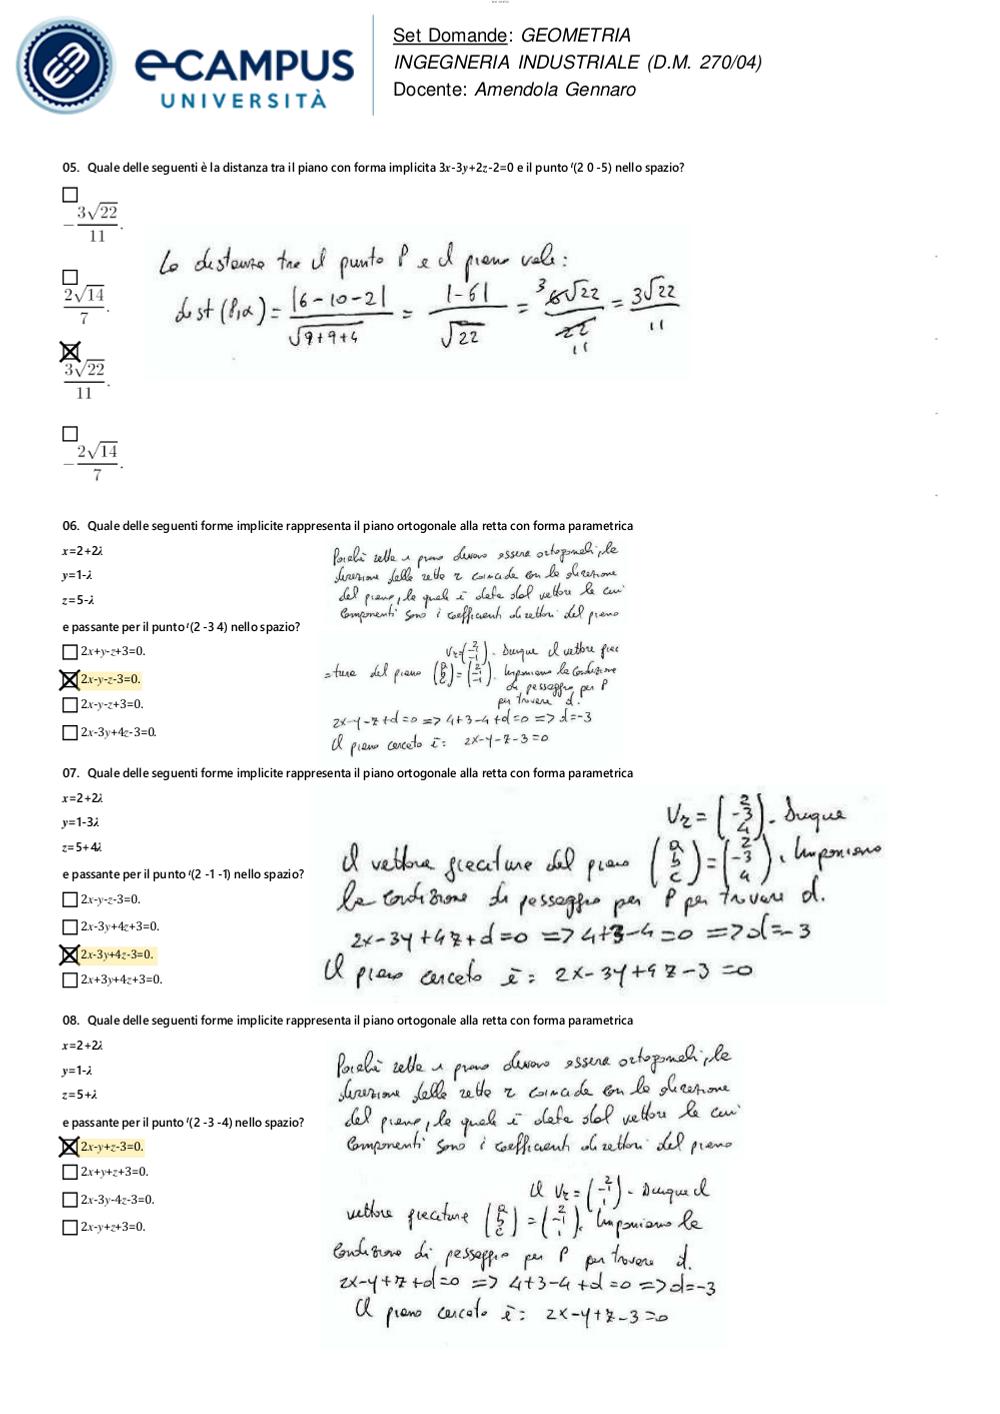 e-CAMPUS
UNIVERSITÀ
Set Domande: GEOMETRIA
INGEGNERIA INDUSTRIALE (D.M. 270/04)
Docente: Amendola Gennaro
05. Quale delle seguenti è la distanza tra il piano con forma implicita 3x-3y+2z-2=0 e il punto ᵗ(2 0 -5) nello spazio?
-3√22/11.
2√14/7.
3√22/11.
-2√14/7.
La distanza tra il punto P e il piano vale:
dist (P,α) = |6-10-2|/√9+9+4 = |-6|/√22 = 3 6√22/22 11 = 3√22/11
06. Quale delle seguenti forme implicite rappresenta il piano ortogonale alla retta con forma parametrica
x=2+2λ
y=1-λ
z=5-λ
e passante per il punto ᵗ(2 -3 4) nello spazio?
2x+y-z+3=0.
2x-y-z-3=0.
2x-y-z+3=0.
2x-3y+4z-3=0.
Poiché retta e piano devono essere ortogonali, la
direzione della retta r coincide con la direzione
del piano, la quale è data dal vettore le cui
componenti sono i coefficienti direttori del piano
Vr=(2 -1 -1). Dunque il vettore giac
=tura del piano (a b c) = (2 -1 -1). Imponiamo la condizione
di passaggio per P
per trovare d.
2x-y-z+d=0 => 4+3-4+d=0 => d=-3
Il piano cercato è: 2x-y-z-3=0
07. Quale delle seguenti forme implicite rappresenta il piano ortogonale alla retta con forma parametrica
x=2+2λ
y=1-3λ
z=5+4λ
e passante per il punto ᵗ(2 -1 -1) nello spazio?
2x-y-z-3=0.
2x-3y+4z+3=0.
2x-3y+4z-3=0.
2x+3y+4z+3=0.
Vr = (2 -3 4). Dunque
il vettore giacitura del piano (a b c) = (2 -3 4). Imponiamo
la condizione di passaggio per P per trovare d.
2x-3y+4z+d=0 => 4+3-4=0 => d=-3
Il piano cercato è: 2x-3y+4z-3=0
08. Quale delle seguenti forme implicite rappresenta il piano ortogonale alla retta con forma parametrica
x=2+2λ
y=1-λ
z=5+λ
e passante per il punto ᵗ(2 -3 -4) nello spazio?
2x-y+z-3=0.
2x+y+z+3=0.
2x-3y-4z-3=0.
2x-y+z+3=0.
Poiché retta e piano devono essere ortogonali, la
direzione della retta r coincide con la direzione
del piano, la quale è data dal vettore le cui
componenti sono i coefficienti direttori del piano
Il Vr = (2 -1 1). Dunque il
vettore giacitura (a b c) = (2 -1 1). Imponiamo la
condizione di passaggio per P per trovare d.
2x-y+z+d=0 => 4+3-4+d=0 => d=-3
Il piano cercato è: 2x-y+z-3=0